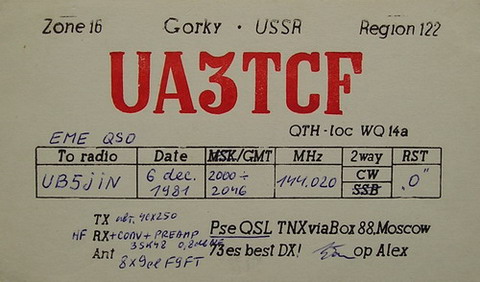 Zone 16 Gorky · USSR Region 122
UA3TCF
EME QSO QTH-loc WQ14a
To radio Date MSK/GMT MHz 2way RST
UB5JIN 6 dec. 1981 2000÷2046 144.020 CW SSB "O"
TX 4CX250
HF RX+CONV+PREAMP Pse QSL TNX via Box 88, Moscow
Ant 73es best DX! op Alex
8x9el F9FT